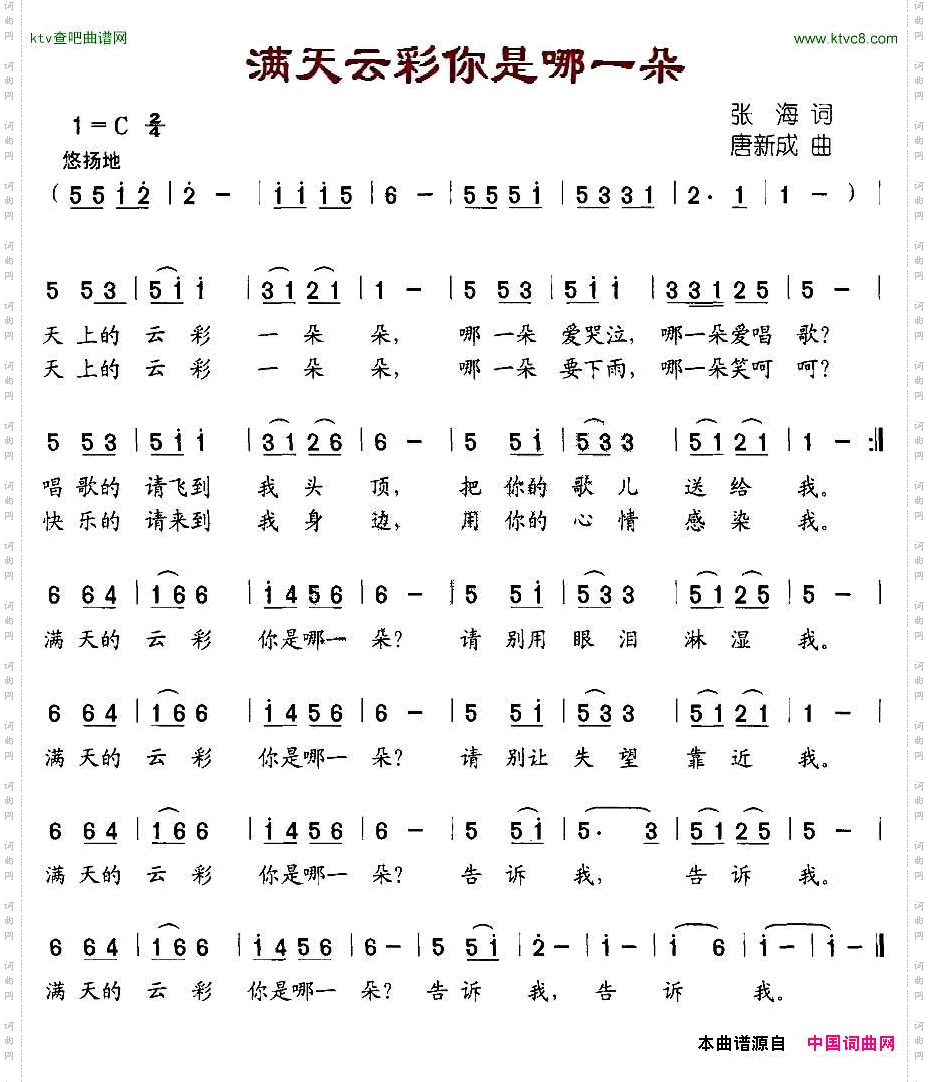 ktv查吧曲谱网
www.ktvc8.com
满天云彩你是哪一朵
1=C 2/4
张 海 词
唐新成 曲
悠扬地
( 5 5 i 2 | 2 - | i i i 5 | 6 - | 5 5 5 i | 5 3 3 1 | 2· 1 | 1 - ) |
5 5 3 | 5 i i | 3 1 2 1 | 1 - | 5 5 3 5 | 5 i i | 3 3 1 2 5 | 5 - |
天 上的 云 彩 一 朵 朵, 哪 一朵 爱哭泣, 哪一朵爱唱 歌?
天 上的 云 彩 一 朵 朵, 哪 一朵 要下雨, 哪一朵笑呵 呵?
5 5 3 | 5 i i | 3 1 2 6 | 6 - | 5 5 i | 5 3 3 | 5 1 2 1 | 1 - :||
唱 歌的 请飞到 我 头 顶, 把 你的 歌 儿 送 给 我。
快 乐的 请来到 我 身 边, 用 你的 心 情 感 染 我。
6 6 4 | 1 6 6 | i 4 5 6 | 6 - | 5 5 i | 5 3 3 | 5 1 2 5 | 5 - |
满 天的 云 彩 你是哪一 朵? 请 别用 眼 泪 淋 湿 我。
6 6 4 | 1 6 6 | i 4 5 6 | 6 - | 5 5 i | 5 3 3 | 5 1 2 1 | 1 - |
满 天的 云 彩 你是哪一 朵? 请 别让 失 望 靠 近 我。
6 6 4 | 1 6 6 | i 4 5 6 | 6 - | 5 5 i | 5· 3 | 5 1 2 5 | 5 - |
满 天的 云 彩 你是哪一 朵? 告 诉 我, 告 诉 我。
6 6 4 | 1 6 6 | i 4 5 6 | 6 - | 5 5 i | 2 - | i - | i 6 | i - | i - ||
满 天的 云 彩 你是哪一 朵? 告 诉 我, 告 诉 我。
本曲谱源自 中国词曲网